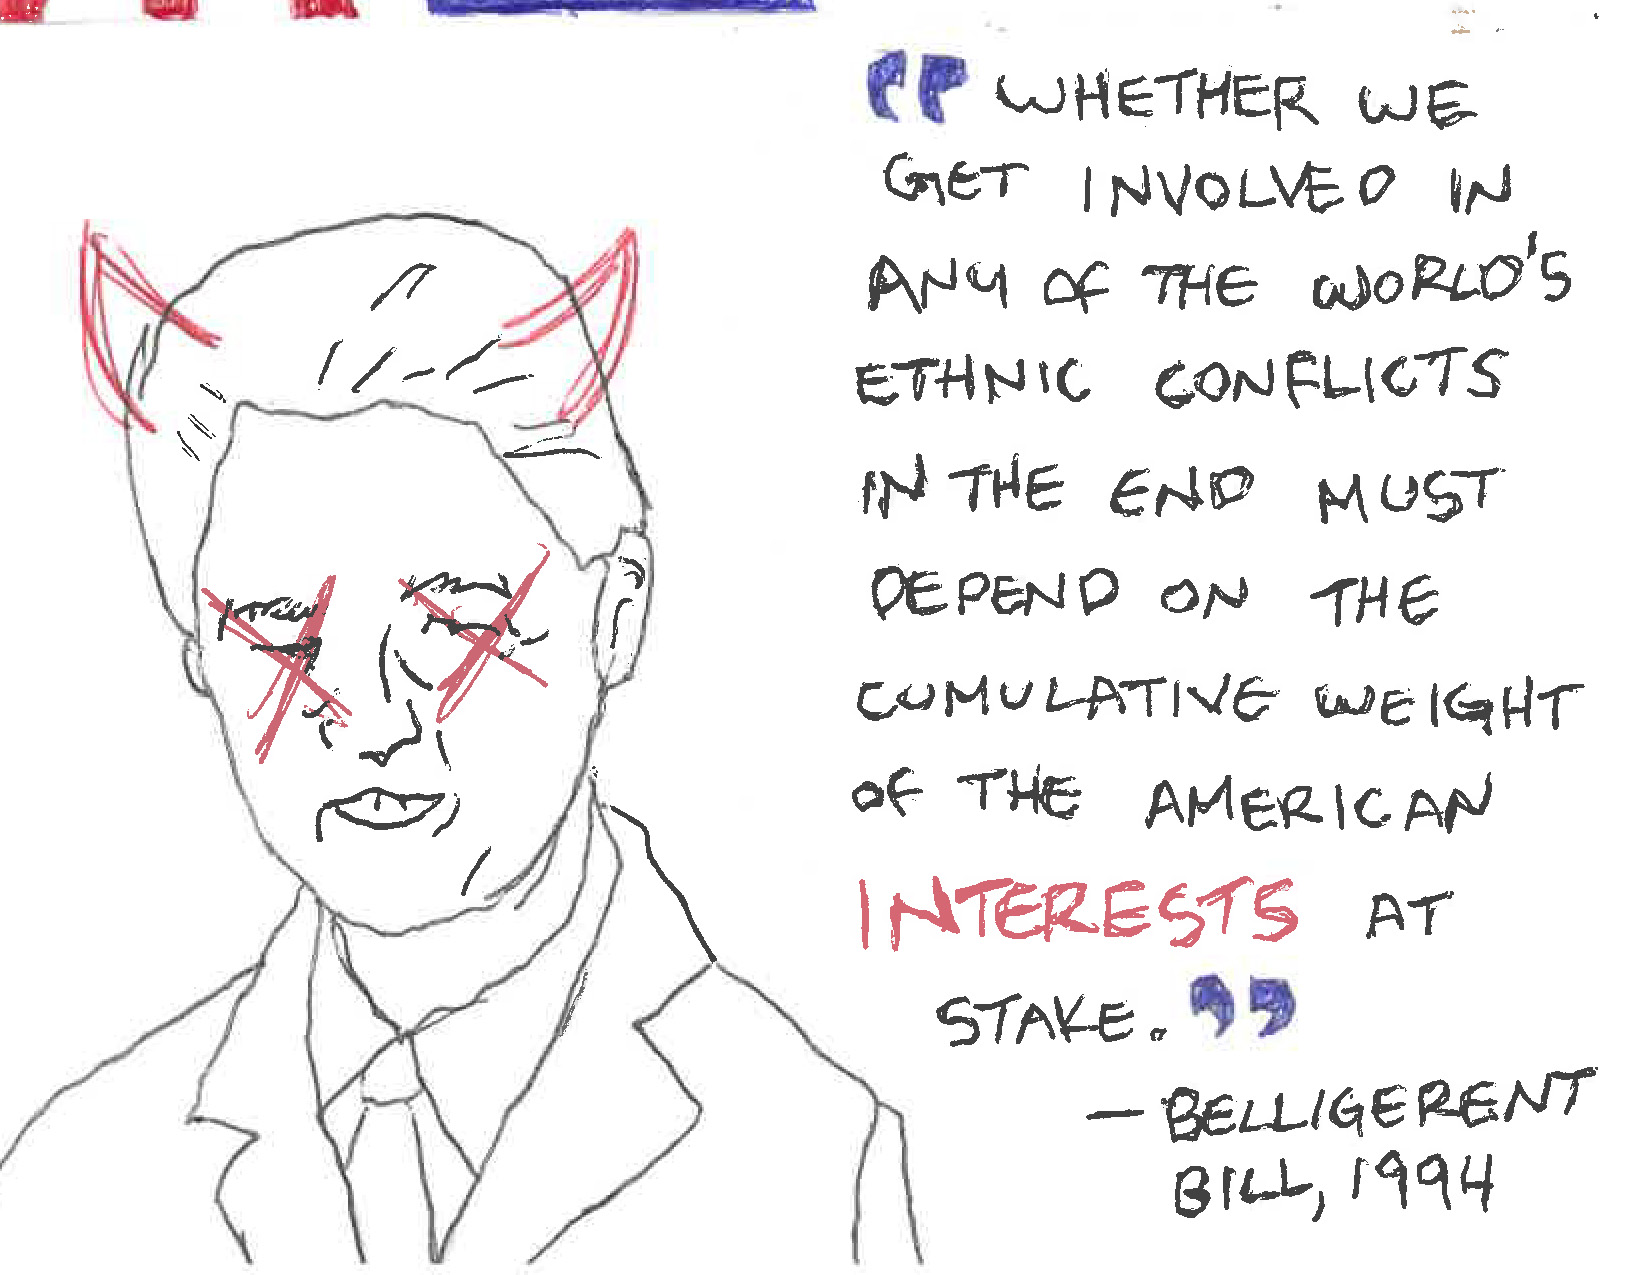 “WHETHER WE
GET INVOLVED IN
ANY OF THE WORLD'S
ETHNIC CONFLICTS
IN THE END MUST
DEPEND ON THE
CUMULATIVE WEIGHT
OF THE AMERICAN
INTERESTS AT
STAKE.”
— BELLIGERENT
BILL, 1994